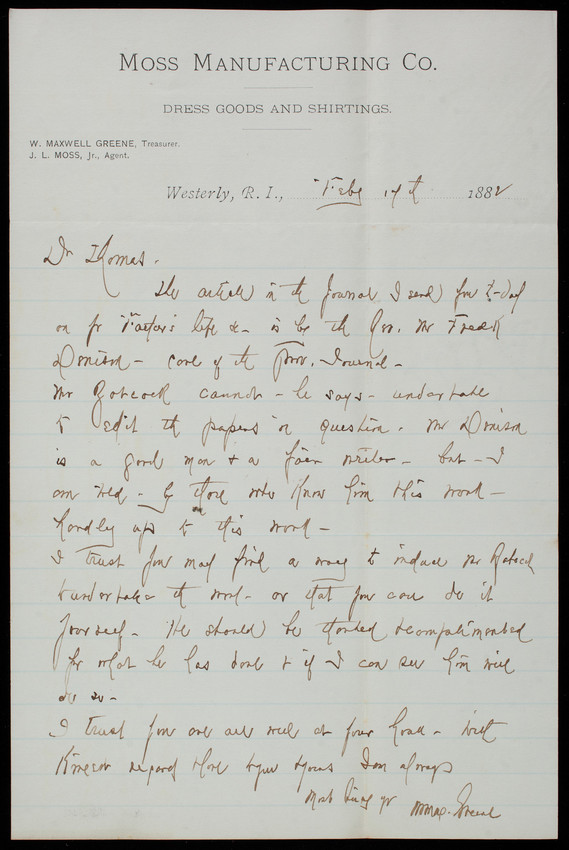 MOSS MANUFACTURING CO.
DRESS GOODS AND SHIRTINGS.
W. MAXWELL GREENE, Treasurer.
J. L. MOSS, Jr., Agent.
Westerly, R. I., Feby 17th 1882
Dr Thomas.
The article in the Journal I send you to-day
on yr Father's life &c - is by the Rev. Mr Fredk
Denison - care of the Prov. Journal -
Mr Babcock cannot - he says - undertake
to edit the papers in question. Mr Denison
is a good man & a fair writer - but - I
am told - by those who know him this work -
hardly up to this work -
I trust you may find a way to induce Mr Babcock
to undertake the work - or that you can do it
yourself - He should be thanked & complimented
for what he has done & if I can see him will
do so -
I trust you are all well at your home - With
kindest regards there & yrs I am always
Most truly yr